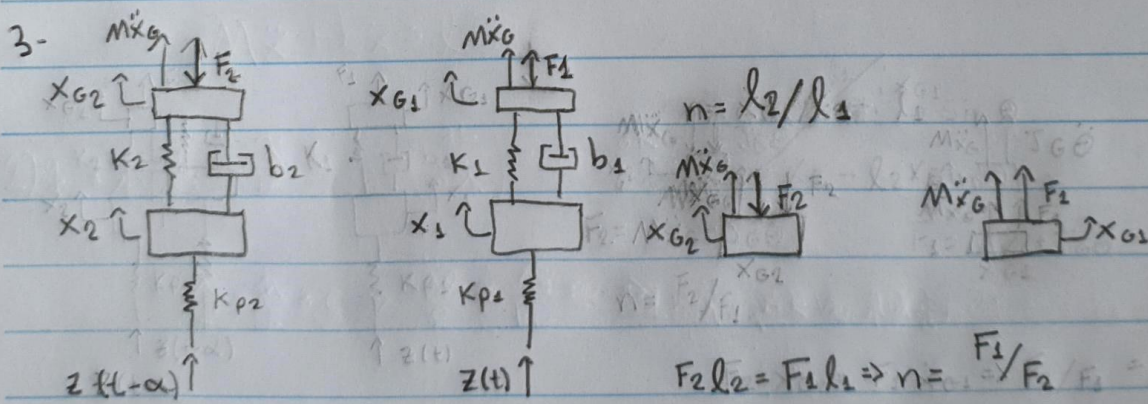 3-
MẍG F2
XG2
K2 b2
X2
Kp2
z(t-α)
MẍG F1
XG1
K1 b1
X1
Kp1
z(t)
n = l2/l1
MẍG F2
XG2
MẍG F1
XG1
F2 l2 = F1 l1 => n = F1/F2